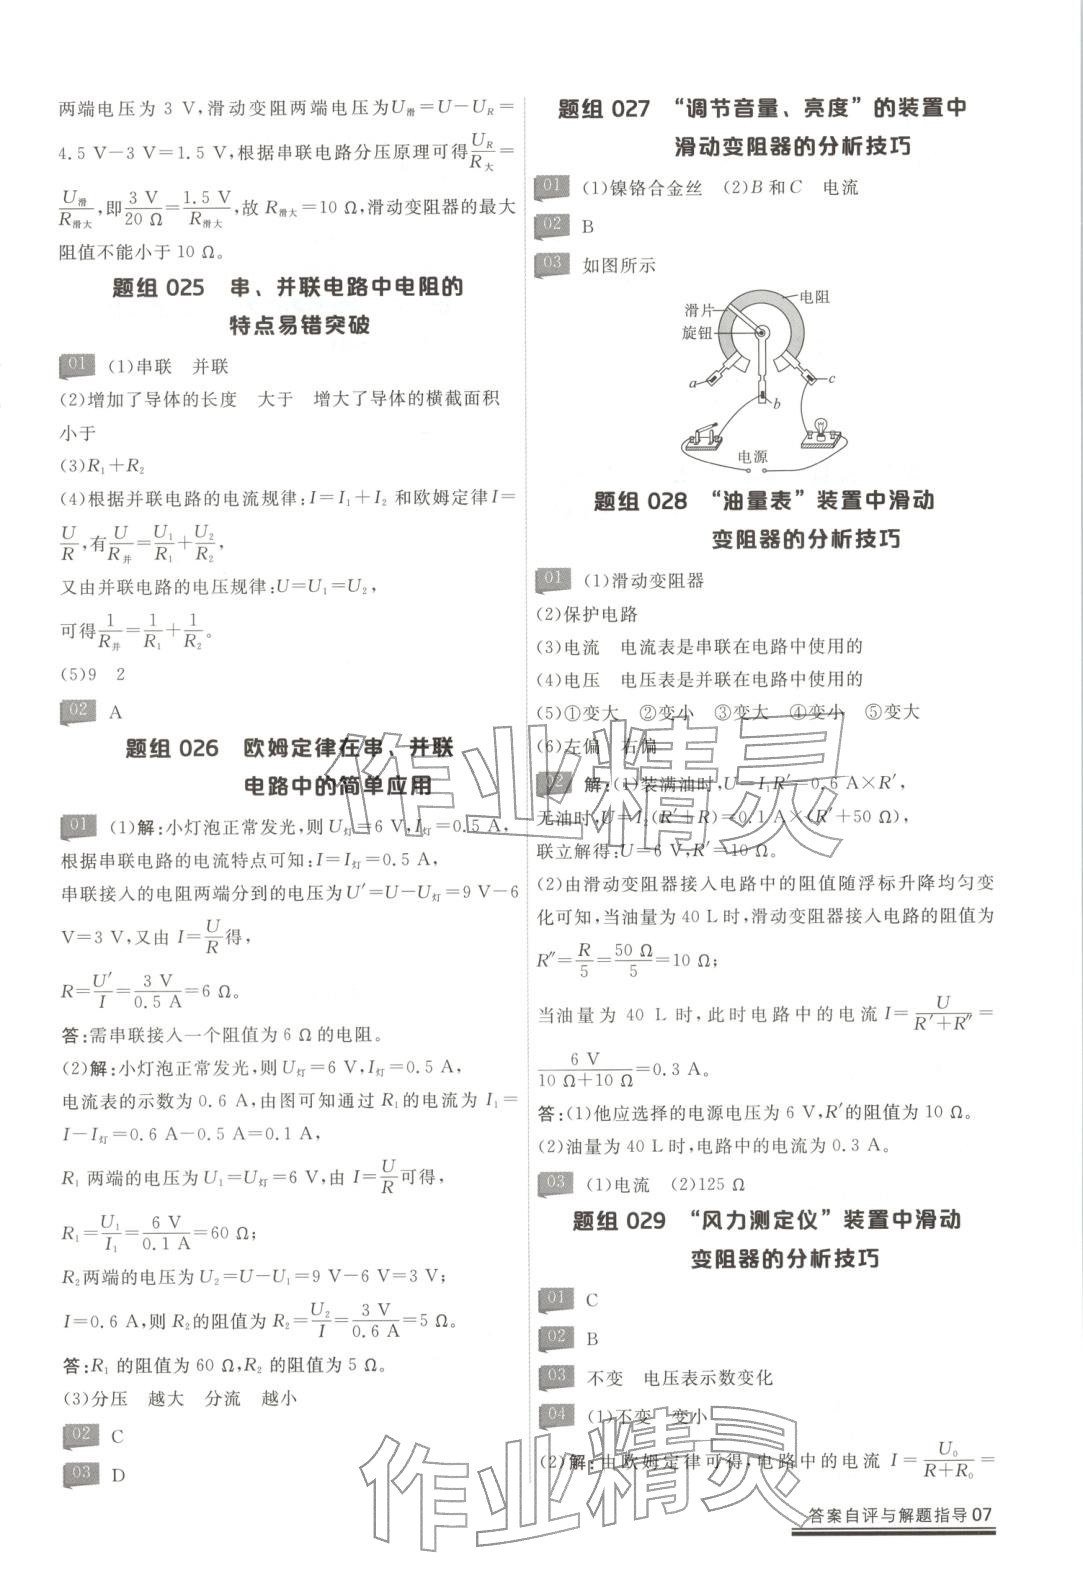 两端电压为 3 V,滑动变阻两端电压为U滑=U-U_R=
4.5 V-3 V=1.5 V,根据串联电路分压原理可得U_R/R大=
U滑/R滑大,即3 V/20 Ω=1.5 V/R滑大,故 R滑大=10 Ω,滑动变阻器的最大
阻值不能小于 10 Ω。
题组 025 串、并联电路中电阻的
特点易错突破
01 (1)串联 并联
(2)增加了导体的长度 大于 增大了导体的横截面积
小于
(3)R₁+R₂
(4)根据并联电路的电流规律:I=I₁+I₂ 和欧姆定律I=
U/R,有U/R并=U₁/R₁+U₂/R₂,
又由并联电路的电压规律:U=U₁=U₂,
可得1/R并=1/R₁+1/R₂。
(5)9 2
02 A
题组 026 欧姆定律在串、并联
电路中的简单应用
01 (1)解:小灯泡正常发光,则 U灯=6 V,I灯=0.5 A,
根据串联电路的电流特点可知:I=I灯=0.5 A,
串联接入的电阻两端分到的电压为 U′=U-U灯=9 V-6
V=3 V,又由 I=U/R得,
R=U′/I=3 V/0.5 A=6 Ω。
答:需串联接入一个阻值为 6 Ω 的电阻。
(2)解:小灯泡正常发光,则 U灯=6 V,I灯=0.5 A,
电流表的示数为 0.6 A,由图可知通过 R₁的电流为 I₁=
I-I灯=0.6 A-0.5 A=0.1 A,
R₁ 两端的电压为 U₁=U灯=6 V,由 I=U/R可得,
R₁=U₁/I₁=6 V/0.1 A=60 Ω;
R₂两端的电压为 U₂=U-U₁=9 V-6 V=3 V;
I=0.6 A,则 R₂的阻值为 R₂=U₂/I=3 V/0.6 A=5 Ω。
答:R₁ 的阻值为 60 Ω,R₂ 的阻值为 5 Ω。
(3)分压 越大 分流 越小
02 C
03 D
题组 027 “调节音量、亮度”的装置中
滑动变阻器的分析技巧
01 (1)镍铬合金丝 (2)B 和 C 电流
02 B
03 如图所示
电阻
滑片
旋钮
a
b
c
电源
题组 028 “油量表”装置中滑动
变阻器的分析技巧
01 (1)滑动变阻器
(2)保护电路
(3)电流 电流表是串联在电路中使用的
(4)电压 电压表是并联在电路中使用的
(5)①变大 ②变小 ③变大 ④变小 ⑤变大
(6)左偏 右偏
02 解:(1)装满油时,U=I₁R′=0.6 A×R′,
无油时,U=I₂(R′+R)=0.1 A×(R′+50 Ω),
联立解得:U=6 V,R′=10 Ω。
(2)由滑动变阻器接入电路中的阻值随浮标升降均匀变
化可知,当油量为 40 L 时,滑动变阻器接入电路的阻值为
R″=R/5=50 Ω/5=10 Ω;
当油量为 40 L 时,此时电路中的电流 I=U/(R′+R″)=
6 V/(10 Ω+10 Ω)=0.3 A。
答:(1)他应选择的电源电压为 6 V,R′的阻值为 10 Ω。
(2)油量为 40 L 时,电路中的电流为 0.3 A。
03 (1)电流 (2)125 Ω
题组 029 “风力测定仪”装置中滑动
变阻器的分析技巧
01 C
02 B
03 不变 电压表示数变化
04 (1)不变 变小
(2)解:由欧姆定律可得,电路中的电流 I=U₀/(R+R₀)=
答案自评与解题指导 07
作业精灵
作业精灵